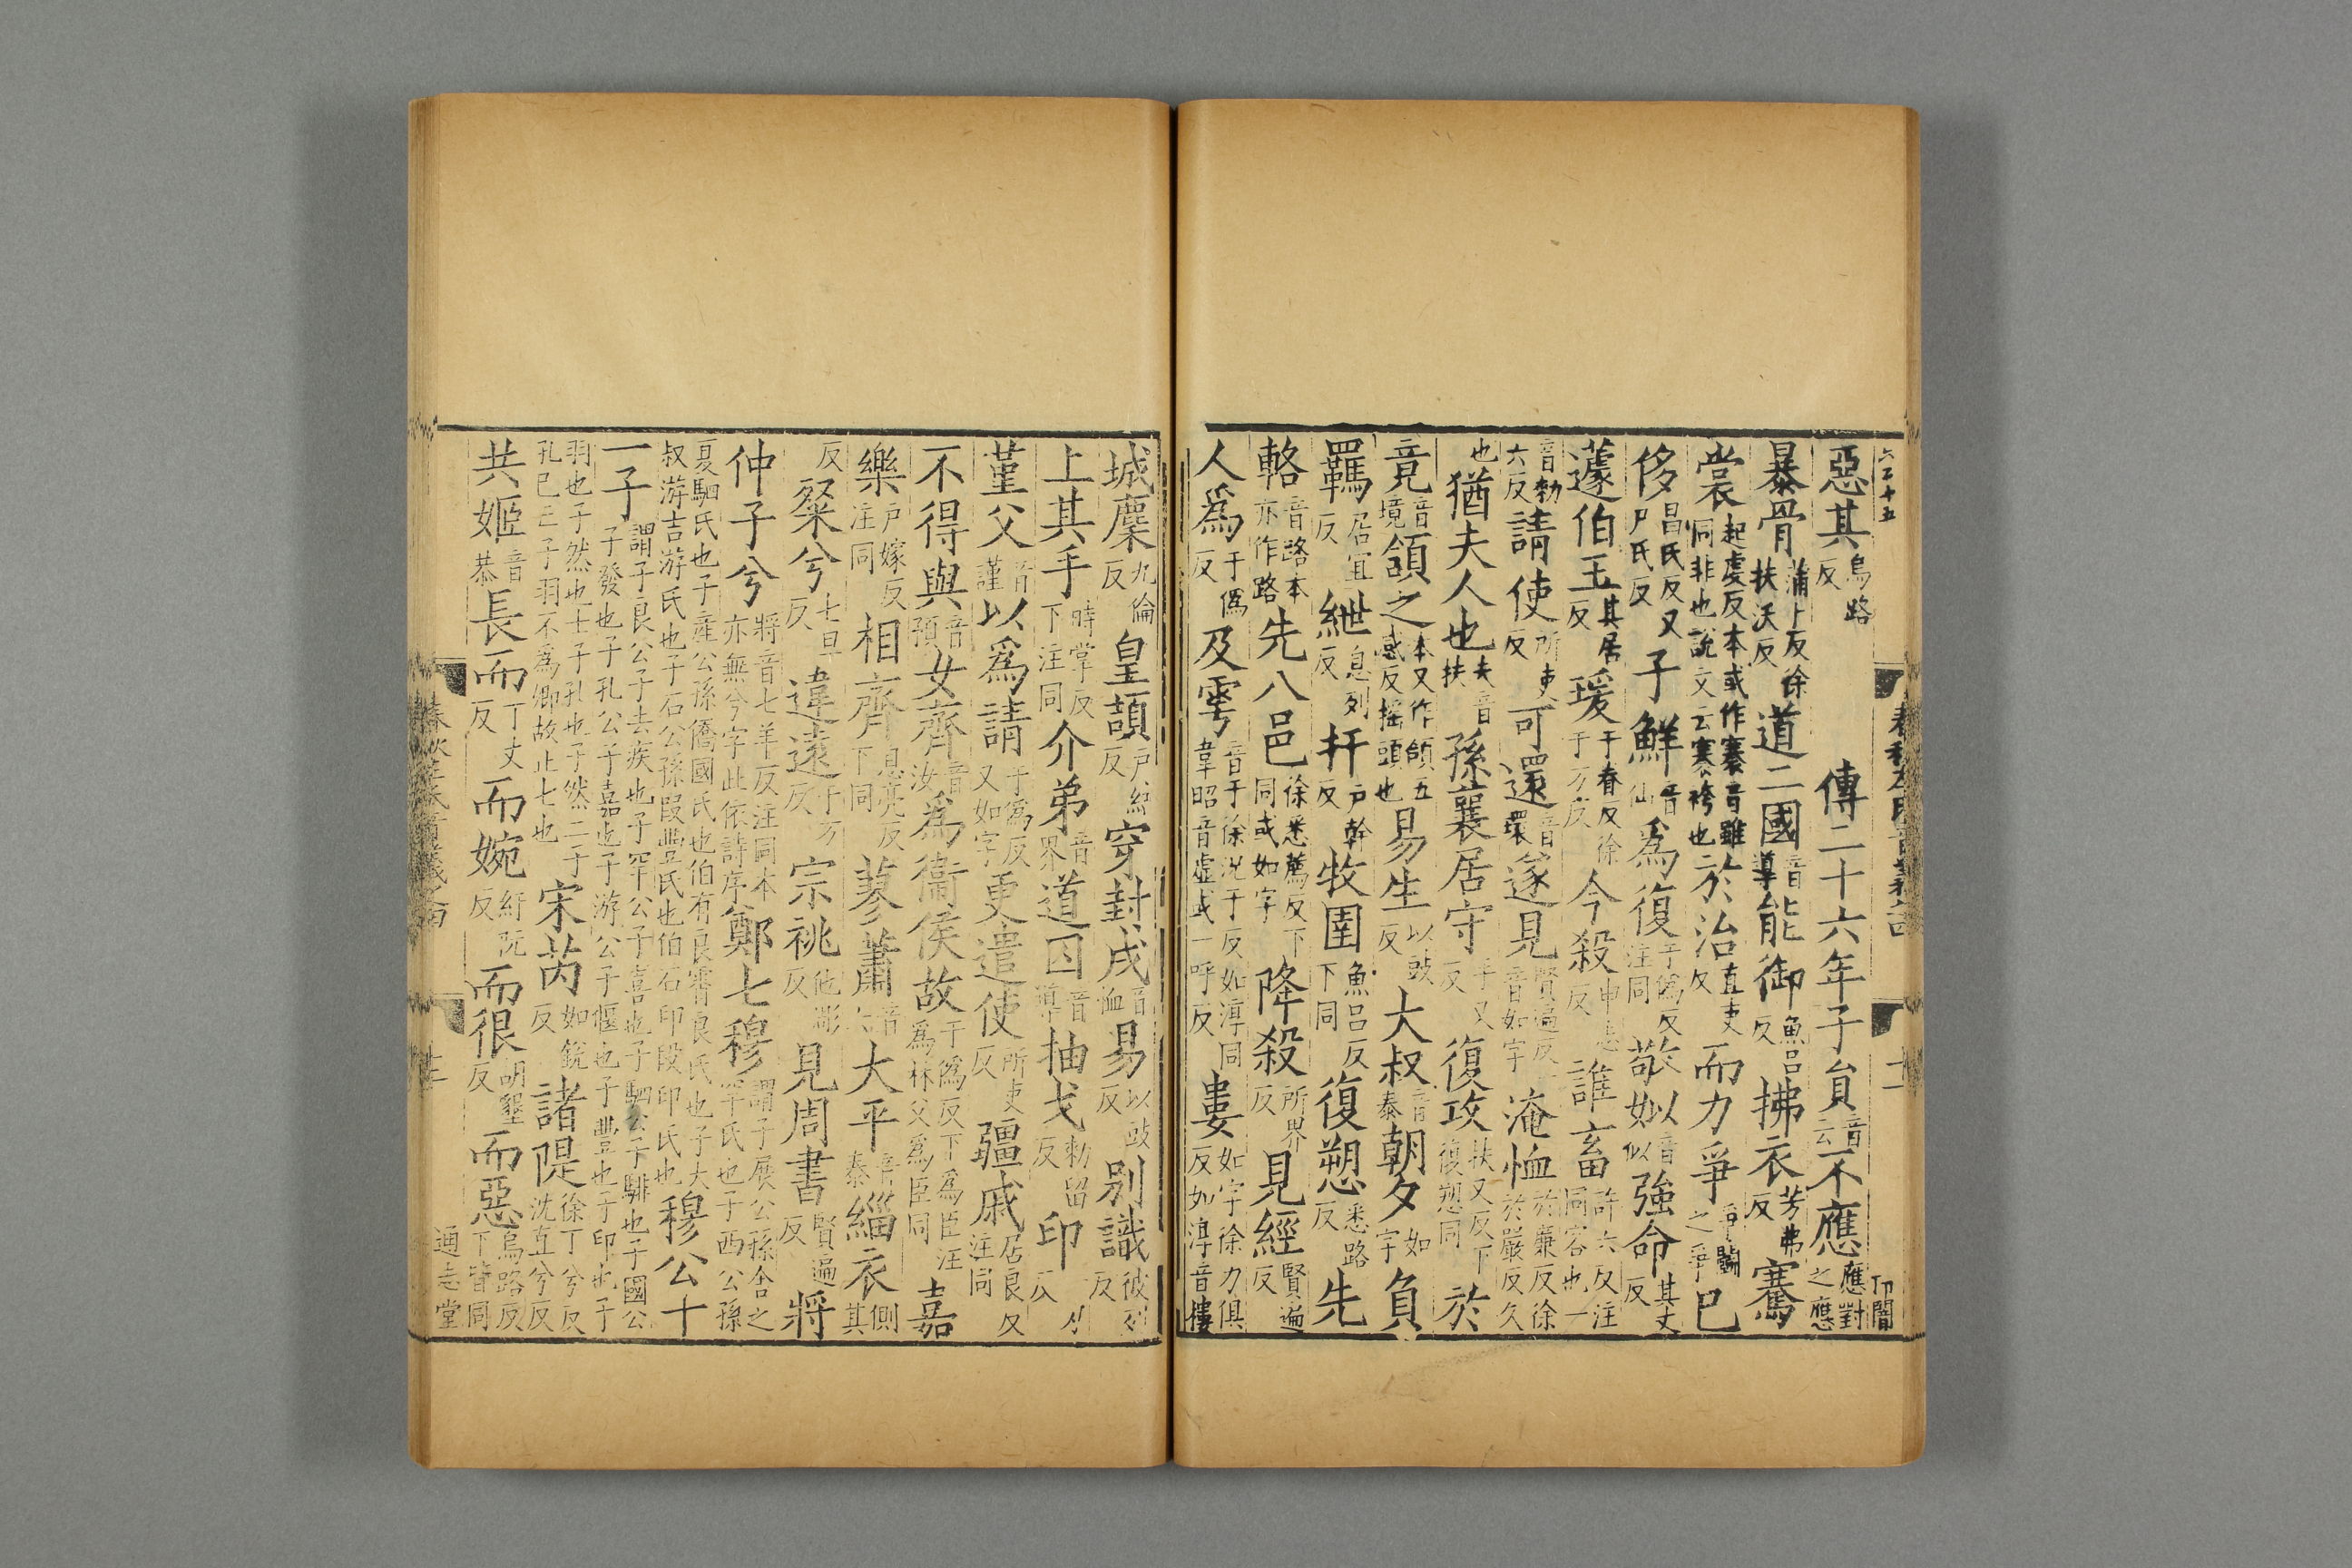 惡其烏路反 傳二十六年子員音云不應應對之應
暴骨蒲卜反徐扶沃反道二國音導能御魚呂反拂衣芳弗反騫
裳起虔反本或作褰音雖同非也說文云褰袴也於治直吏反而力爭爭鬭之爭巳
侈昌氏反又尸氏反子鮮音仙爲復于僞反注同敬姒音似強命其丈反
蘧伯玉其居反瑗于眷反徐于万反今殺申志反誰畜許六反注同容也一
音勑六反請使所吏反可還音環遂見賢遍反一音如字淹恤於廉反徐於嚴反久
也猶夫人也夫音扶孫襄居守手又反復攻扶又反下復愬同於
竟音境頷之本又作頜五感反搖頭也易生以豉反大叔音泰朝夕如字負
羈居宜反紲息列反扞戶幹反牧圉魚呂反下同復愬悉路反先
輅音路本亦作路先八邑徐悉薦反下同或如字降殺所界反見經賢遍反先
人爲于僞反及雩音于徐況于反如淳同韋昭音虛武一呼反婁如字徐力俱反如淳音樓
城麇九倫反皇頡戶結反穿封戌音恤易以豉反別識彼列反
上其手時掌反下注同介弟音界道因音導抽戈勑留反印一刃反
堇父音謹以爲請于爲反又如字更遣使所吏反疆戚居良反注同
不得與音預女齊音汝爲衛侯故于僞反下爲臣注爲林父爲臣同嘉
樂戶嫁反注同相齊息亮反下同蓼蕭音六大平音泰緇衣側其
反粲兮七旦反違遠于万反宗祧他彫反見周書賢遍反將
仲子兮將音七羊反注同本亦無兮字此依詩序鄭七穆謂子展公孫舍之罕氏也子西公孫
夏駟氏也子產公孫僑國氏也伯有良霄良氏也子大叔游吉游氏也子石公孫段豐氏也伯石印段印氏也穆公十
一子謂子良公子去疾也子罕公子喜也子駟公子騑也子國公子發也子孔公子嘉也子游公子偃也子豐也子印也子
羽也子然也士子孔也子然二子孔已亡子羽不爲卿故止七也宋芮如銳反諸隄徐丁兮反沈直兮反
共姬音恭長而丁丈反而婉紆阮反而很胡墾反而惡烏路反下皆同
通志堂